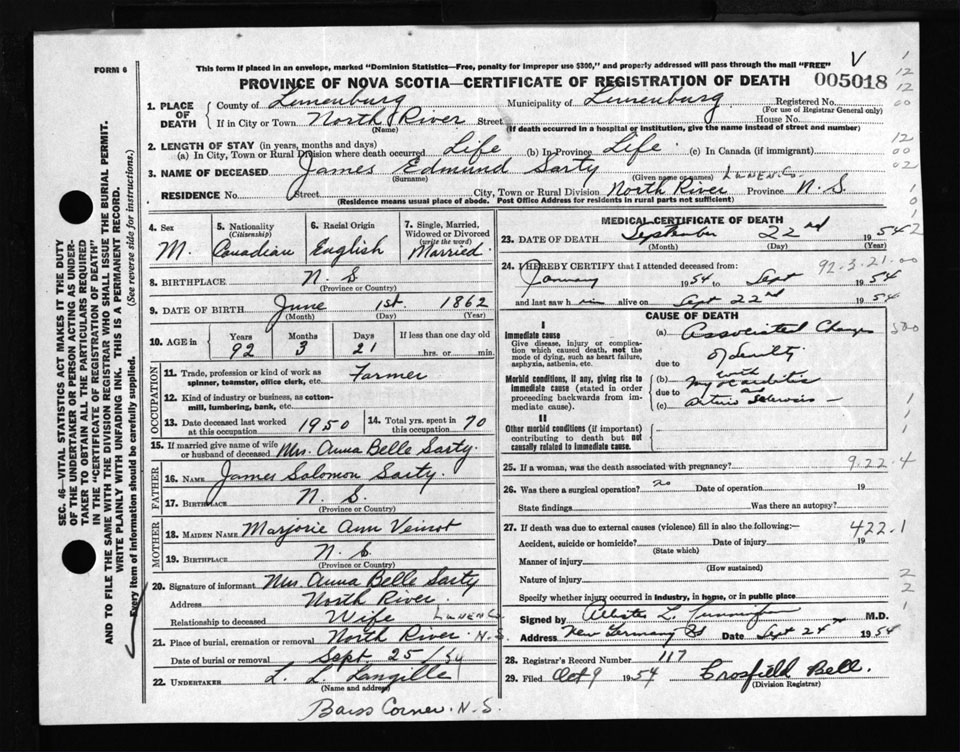 FORM 6
This form if placed in an envelope, marked "Dominion Statistics—Free, penalty for improper use $300," and properly addressed will pass through the mail "FREE"
PROVINCE OF NOVA SCOTIA—CERTIFICATE OF REGISTRATION OF DEATH
005018
1. PLACE OF DEATH
County of Lunenburg Municipality of Lunenburg Registered No.
(For use of Registrar General only)
If in City or Town North River Street House No.
(Name) (If death occurred in a hospital or institution, give the name instead of street and number)
2. LENGTH OF STAY (in years, months and days)
(a) In City, Town or Rural Division where death occurred Life (b) In Province Life (c) In Canada (if immigrant)
3. NAME OF DECEASED James Edmund Sarty
(Surname) (Given name or names) LUNEN. Co.
RESIDENCE No. Street City, Town or Rural Division North River Province N. S.
(Residence means usual place of abode. Post Office Address for residents in rural parts not sufficient)
4. Sex M.
5. Nationality (Citizenship) Canadian
6. Racial Origin English
7. Single, Married, Widowed or Divorced (write the word) Married
8. BIRTHPLACE N. S
(Province or Country)
9. DATE OF BIRTH June 1st. 1862
(Month) (Day) (Year)
10. AGE in Years 92 Months 3 Days 21 If less than one day old hrs. or min.
OCCUPATION
11. Trade, profession or kind of work as spinner, teamster, office clerk, etc. Farmer
12. Kind of industry or business, as cotton-mill, lumbering, bank, etc.
13. Date deceased last worked at this occupation 1950
14. Total yrs. spent in this occupation 70
15. If married give name of wife or husband of deceased Mrs. Anna Belle Sarty.
FATHER
16. NAME James Solomon Sarty.
17. BIRTHPLACE N. S.
(Province or Country)
MOTHER
18. MAIDEN NAME Marjorie Ann Veinot
19. BIRTHPLACE N. S.
(Province or Country)
20. Signature of informant Mrs Anna Belle Sarty
Address North River.
LUNEN Co
Relationship to deceased Wife
21. Place of burial, cremation or removal North River. N. S.
Date of burial or removal Sept 25/54
22. UNDERTAKER L. L. Langille
(Name and address)
Barss Corner. N. S.
MEDICAL CERTIFICATE OF DEATH
23. DATE OF DEATH September 22nd 1954
(Month) (Day) (Year)
92-3-21-00
24. I HEREBY CERTIFY that I attended deceased from:
January 1954 to Sept 1954
and last saw him alive on Sept 22nd 1954
CAUSE OF DEATH
I
Immediate cause
Give disease, injury or complication which caused death, not the mode of dying, such as heart failure, asphyxia, asthenia, etc.
(a) Associated Changes
due to of Senility
Morbid conditions, if any, giving rise to immediate cause (stated in order proceeding backwards from immediate cause).
with
(b) Myocarditis
due to and
(c) Arterio Sclerosis
II
Other morbid conditions (if important) contributing to death but not causally related to immediate cause.
25. If a woman, was the death associated with pregnancy? 9.22.4
26. Was there a surgical operation? no Date of operation 19
State findings Was there an autopsy?
27. If death was due to external causes (violence) fill in also the following:— 422.1
Accident, suicide or homicide? Date of injury 19
(State which)
Manner of injury
(How sustained)
Nature of injury
Specify whether injury occurred in industry, in home, or in public place
Signed by L. Cunningham M.D.
Address New Germany NS Date Sept 24th 1954
28. Registrar's Record Number 117
29. Filed Oct 9 1954 Crosfield Bell.
(Division Registrar)
SEC. 46—VITAL STATISTICS ACT MAKES IT THE DUTY
OF THE UNDERTAKER OR PERSON ACTING AS UNDER-
TAKER TO OBTAIN ALL THE PARTICULARS REQUIRED
IN THE "CERTIFICATE OF REGISTRATION OF DEATH"
AND TO FILE THE SAME WITH THE DIVISION REGISTRAR WHO SHALL ISSUE THE BURIAL PERMIT.
WRITE PLAINLY WITH UNFADING INK. THIS IS A PERMANENT RECORD.
Every item of information should be carefully supplied. (See reverse side for instructions.)